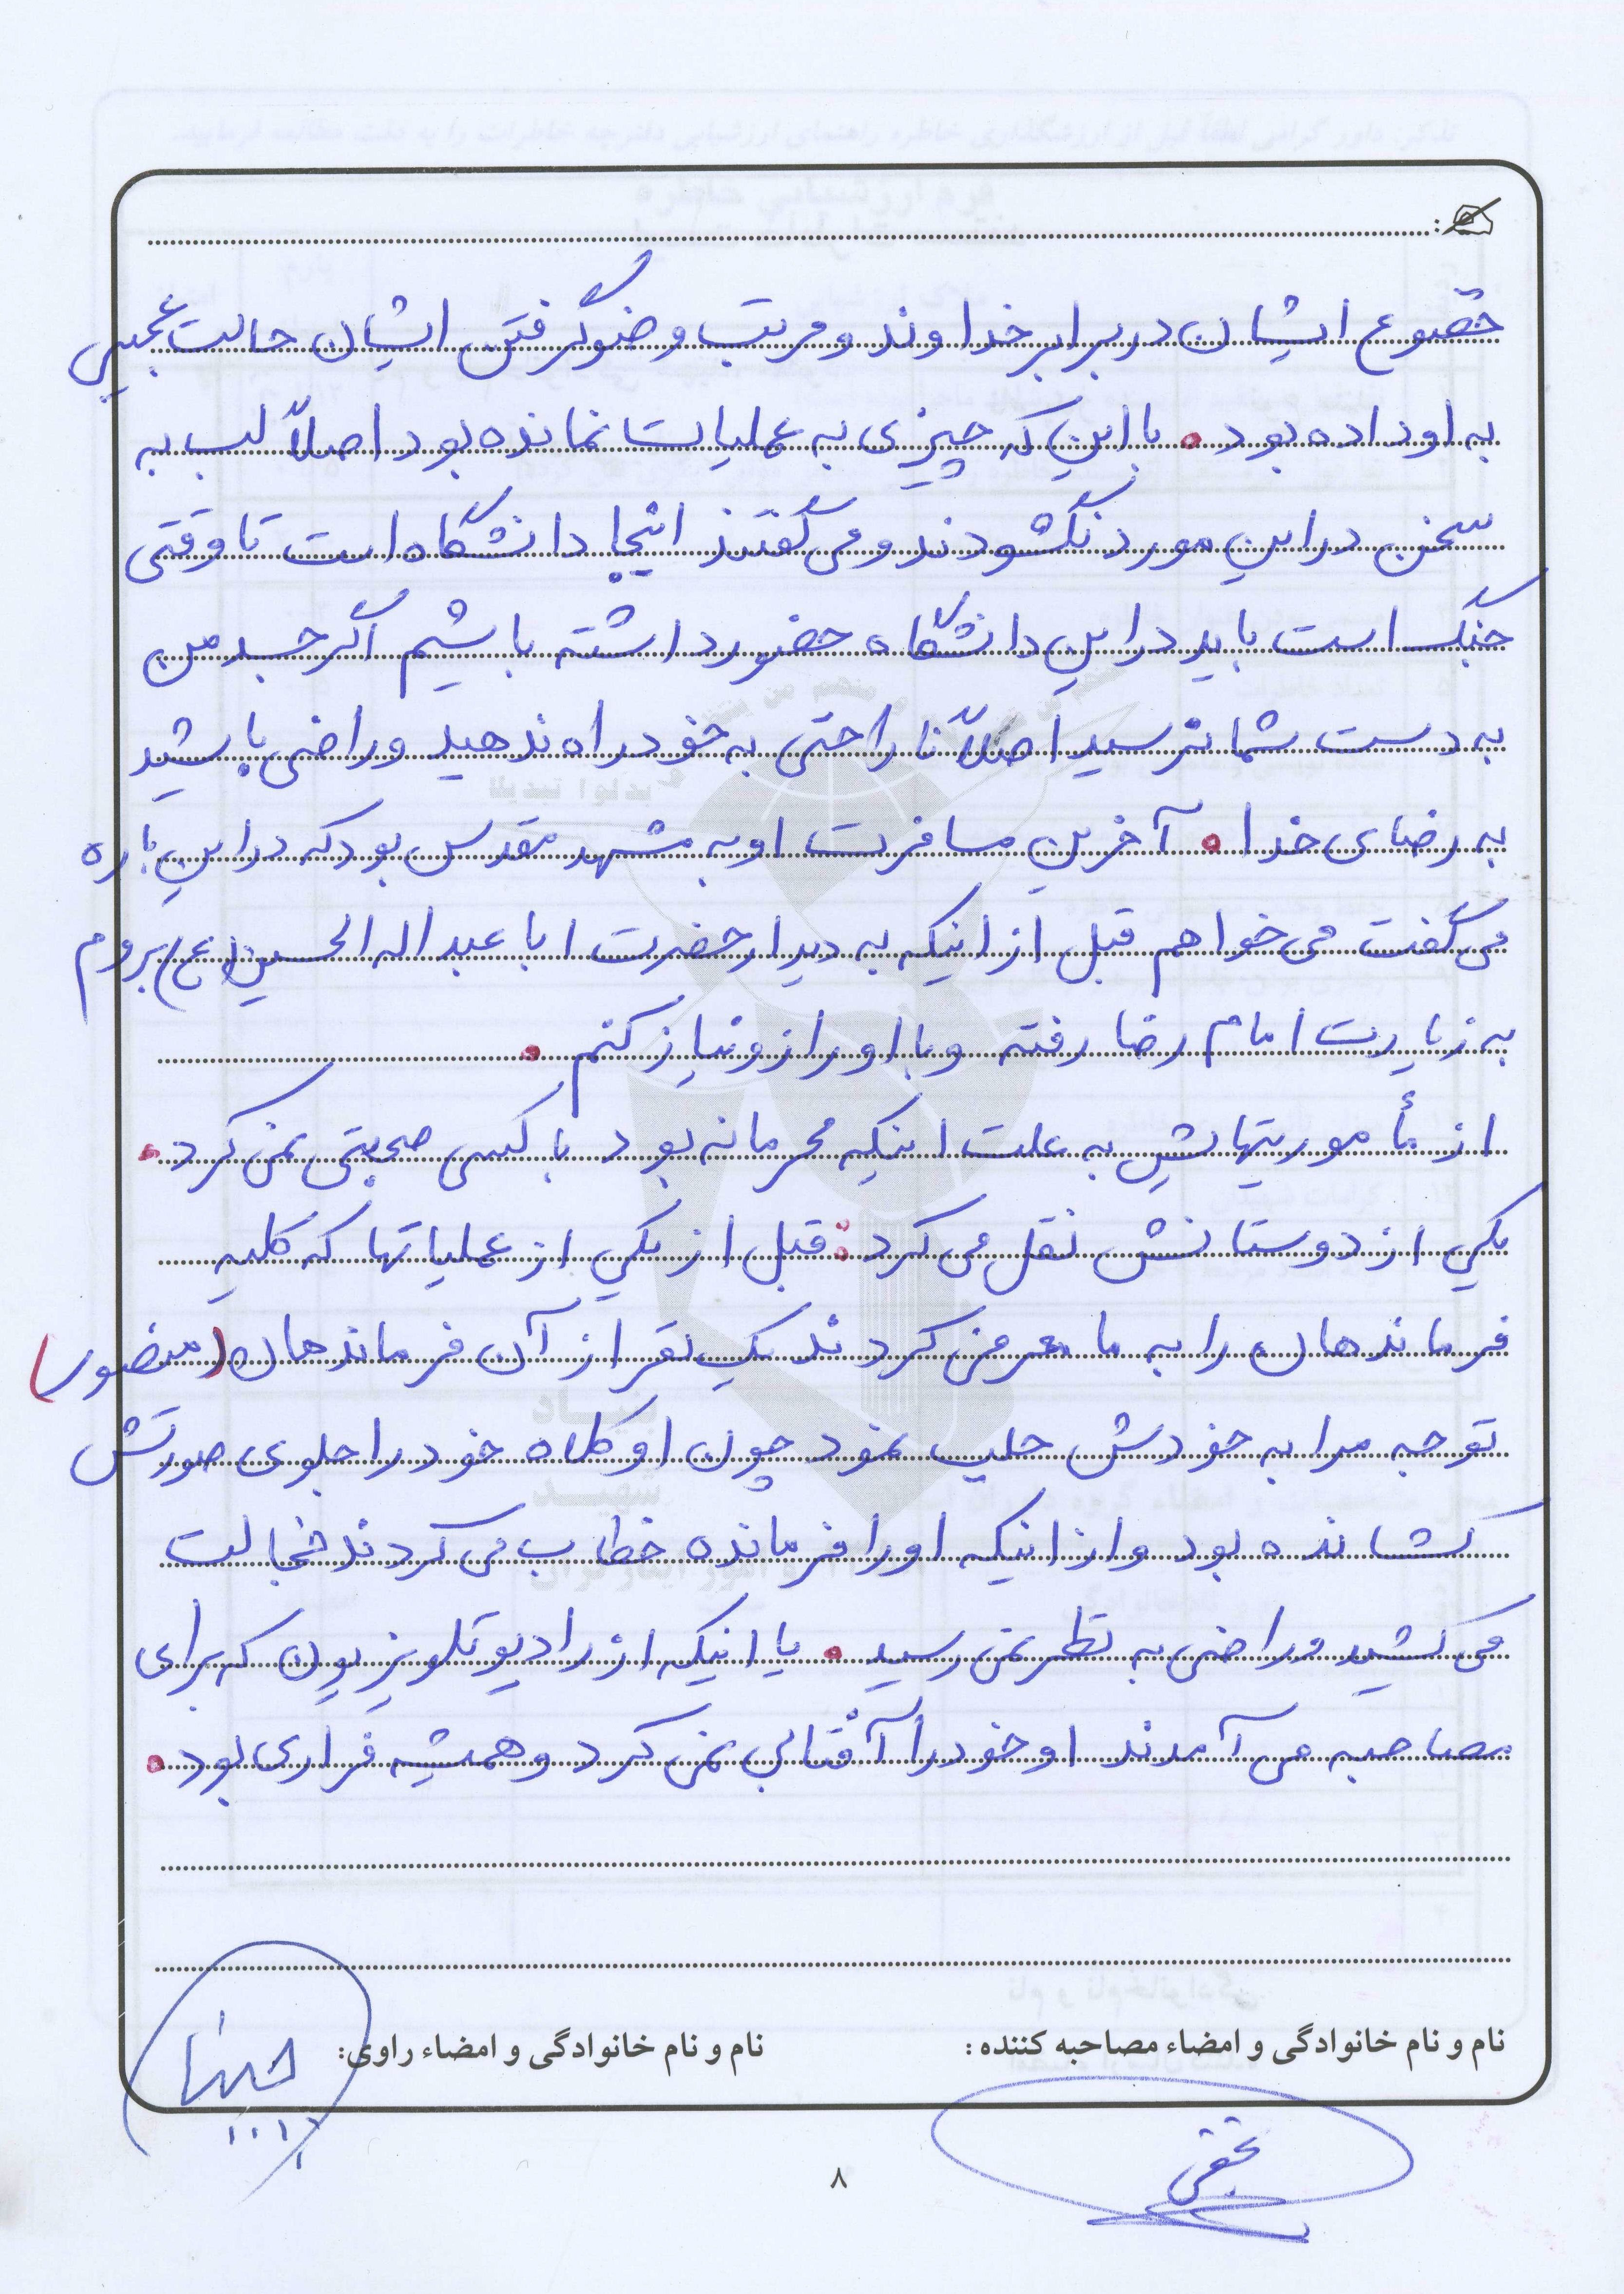 خضوع ایشان در برابر خداوند و مرتب وضو گرفتن ایشان حالت عجیبی
به او داده بود. با این که چیزی به عملیات نمانده بود اصلاً لب به
سخن در این مورد نگشودند و می گفتند اینجا دانشگاه است تا وقتی
جنگ است باید در این دانشگاه حضور داشته باشیم اگر جسد من
به دست شما نرسید اصلاً ناراحتی به خود راه ندهید و راضی باشید
به رضای خدا. آخرین مسافرت او به مشهد مقدس بود که در این باره
می گفت می خواهم قبل از اینکه به دیدار حضرت ابا عبداله الحسین (ع) بروم
به زیارت امام رضا رفته و با او راز و نیاز کنم.
از مأموریتهایش به علت اینکه محرمانه بود با کسی صحبتی نمی کرد.
یکی از دوستانش نقل می کرد: قبل از یکی از عملیاتها که کلیه
فرماندهان را به ما معرفی کردند یک نفر از آن فرماندهان (منصور)
توجه مرا به خودش جلب نمود چون او کلاه خود را جلوی صورتش
کشانده بود و از اینکه او را فرمانده خطاب می کردند خجالت
می کشید و راضی به نظر نمی رسید. یا اینکه از رادیو تلویزیون که برای
مصاحبه می آمدند او خود را آفتابی نمی کرد و همیشه فراری بود.
نام و نام خانوادگی و امضاء مصاحبه کننده: نام و نام خانوادگی و امضاء راوی:
۸